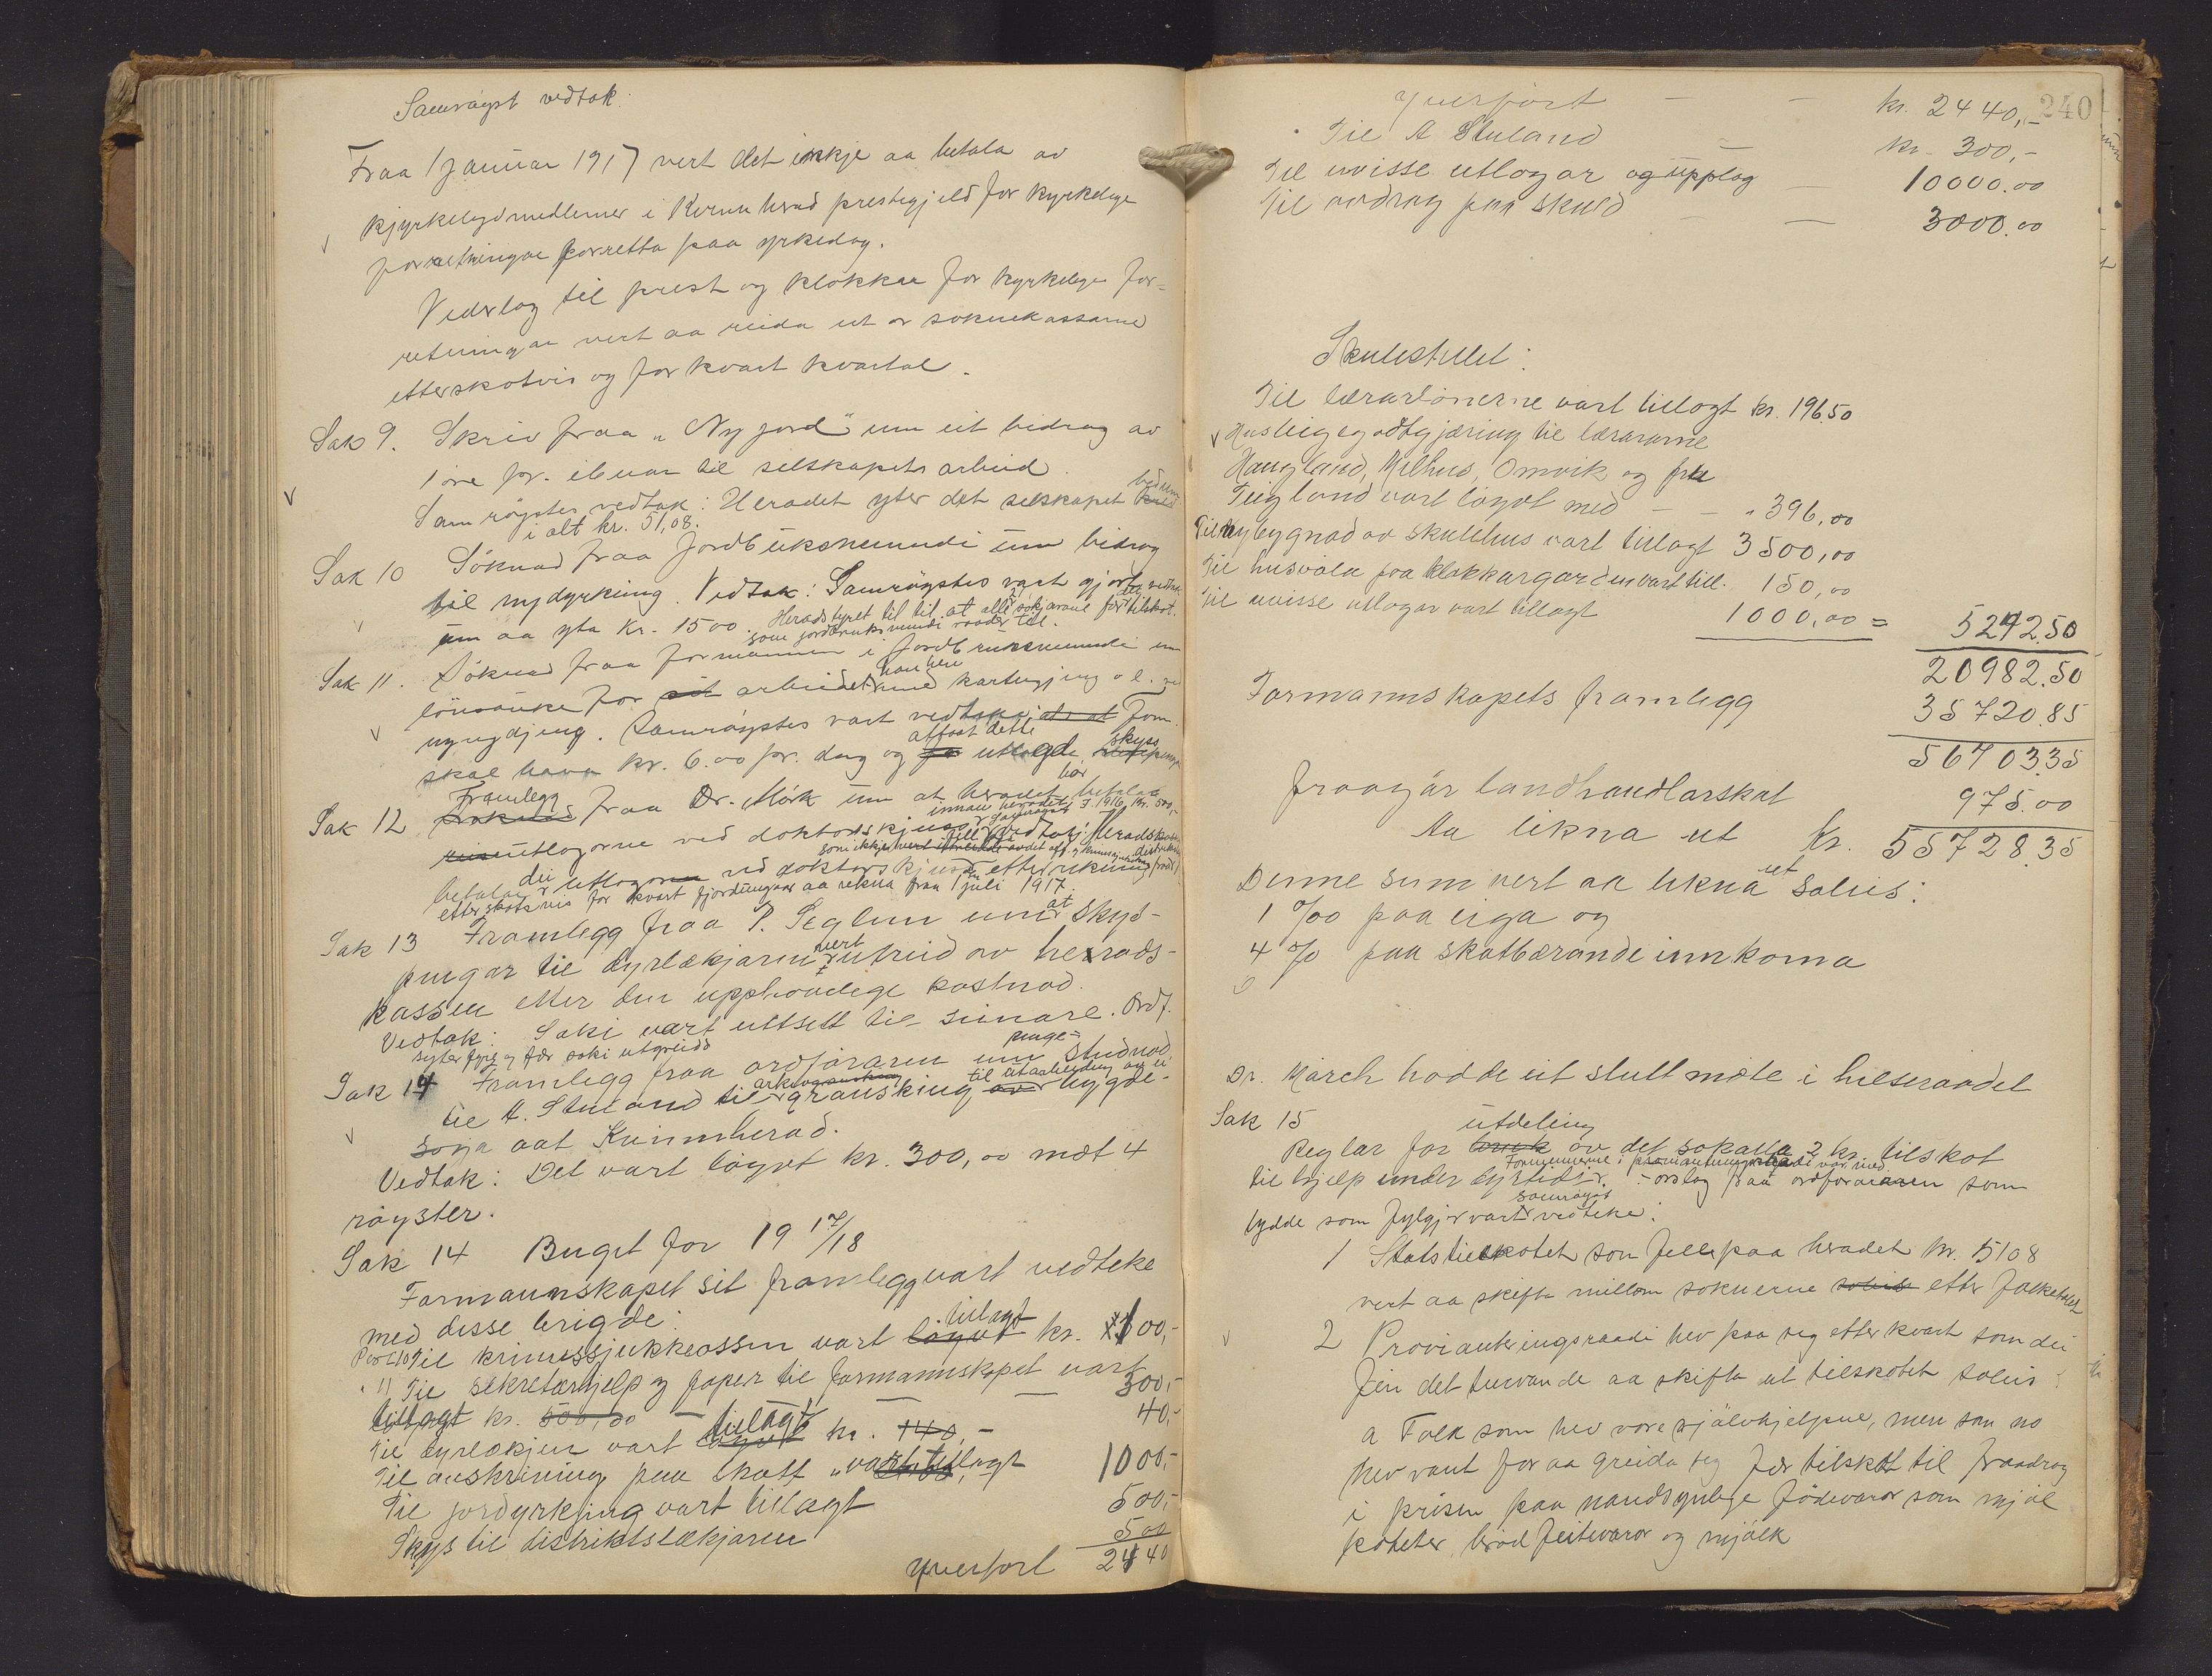 Samrøyst vedtak:
Fraa 1 januar 1917 vert det inkje aa betala av
kjyrkelydmedlemer i Kvinnherad prestegjeld for kyrkelege
forretningar forretta paa yrkedag.
Vederlag til prest og klokkar for kyrkelege for=
retningar vert aa reida ut av soknekassarne
etterskotvis og for kvart kvartal.
Sak 9. Skriv fraa "Ny jord" um eit bidrag av
1 øre pr. ibuar til selskapets arbeid.
Samrøystes vedtak: Heradet yter det selskapet bed um
i alt kr. 51,08.
Sak 10 Søknad fraa Jordbruksnemndi um bidrag
til nydyrking. Vedtak: Samrøystes vart gjort vedtak
um aa yta kr. 1500. Heradstyret til til at alle søkjarane fær tilskot.
som jordbruksnemndi raader til.
Sak 11. Søknad fraa formannen i Jordbruksnemndi um
lønsauke for sit arbeidet han hev med kartegjing o l. ved
nyrydjing. Samrøystes vart vedteke: at at Form.
skal hava kr. 6.00 pr. dag og attaat dette utlagde skyss pengar
Sak 12 Framlegg fraa Dr. Mørk um at heradet bør betala
utlogorne ved doktorskjuss innan heradet f 1916 kr. 500,-
Samrøystes vedtak: Heradskassa
betalar dei utlogorne ved doktorskjuss etter rekning
etterskotsvis for kvart fjordungaar aa rekna fraa 1 juli 1917.
Sak 13 Framlegg fraa P. Seglem um at skys-
pengar til dyrlækjaren vert utreid av herads-
kassen etter den upphavlege kostnad.
Vedtak: Saki vart uttsett til seinare. Ordf.
syter fyre og fær saki utgreidd
Sak 14 Framlegg fraa ordføraren um penge=studnad
til A. Stuland til arkivgransking til utarbeiding av ei bygde-
soga aat Kvinnherad.
Vedtak: Det vart løyvt kr. 300,00 mot 4
røyster.
Sak 14 Buget for 19 17/18
Formannskapet sit framlegg vart vedteke
med desse brigde:
Post 10 Til krinssjukkassen vart løyvt tillagt kr. 100,-
" 11 Til sekretærhjelp og papir til formannskapet vart
tillagt kr. 500,00 — 300,-
Til dyrlækjen vart løyvt tillagt kr. 140,- 40,-
Til anskrivning paa skatt " vart tillagt 1000,-
Til jordyrkjing vart tillagt 500,-
Skyss til distriktslækjaren 500
yverført 2440
240
yverført — — kr. 2440,-
Til A Stuland — kr. 300,-
Til uvisse utlogor og upplag 10000.00
Til avdrag paa skuld — — 3000.00
Skulestellet:
Til lærarlønerne vart tillagt kr. 196.50
Husleigegodtgjæring til lærarane
Haugland, Milhus, Omvik og fru
Teigland vart løyvt med — — " 396,00
Til nybygnad av skulehus vart tillagt 3500,00
Til husvøla paa klokkargarden vart till. 150,00
Til uvisse utlogor vart tillagt 1000,00 = 5242.50
20982.50
Formannskapets framlegg 35720.85
56703.35
fraagår landhandlarskat 975.00
Aa likna ut kr. 55728.35
Denne sum vert aa likna ut soleis:
1 ‰ paa eiga og
4 % paa skatbærande innkoma
Dr. Mørch hadde eit slutt møte i helseraadet
Sak 15
Reglar for bruk utdeling av det sokalla 3 kr. tilskot
til hjelp under dyrtidi. Formennerne i provianteringsraadi var med. Forslag fraa ordføraren som
lydde som fylgjer vart samrøyst vedteke:
1 Statstilskotet som fell paa heradet kr. 5108
vert aa skifta millom soknerne soleis etter folketalet
2 Provianteringsraadi hev paa seg etter kvart som dei
finn det turvande aa skifta ut tilskotet soleis:
a Folk som hev vore sjølvhjelpne, men som no
hev vant for aa greida seg fær tilskot til fraadrag
i prisen paa naudsynlege fødevaror som mjøl
poteter, brød feitevaror og mjølk